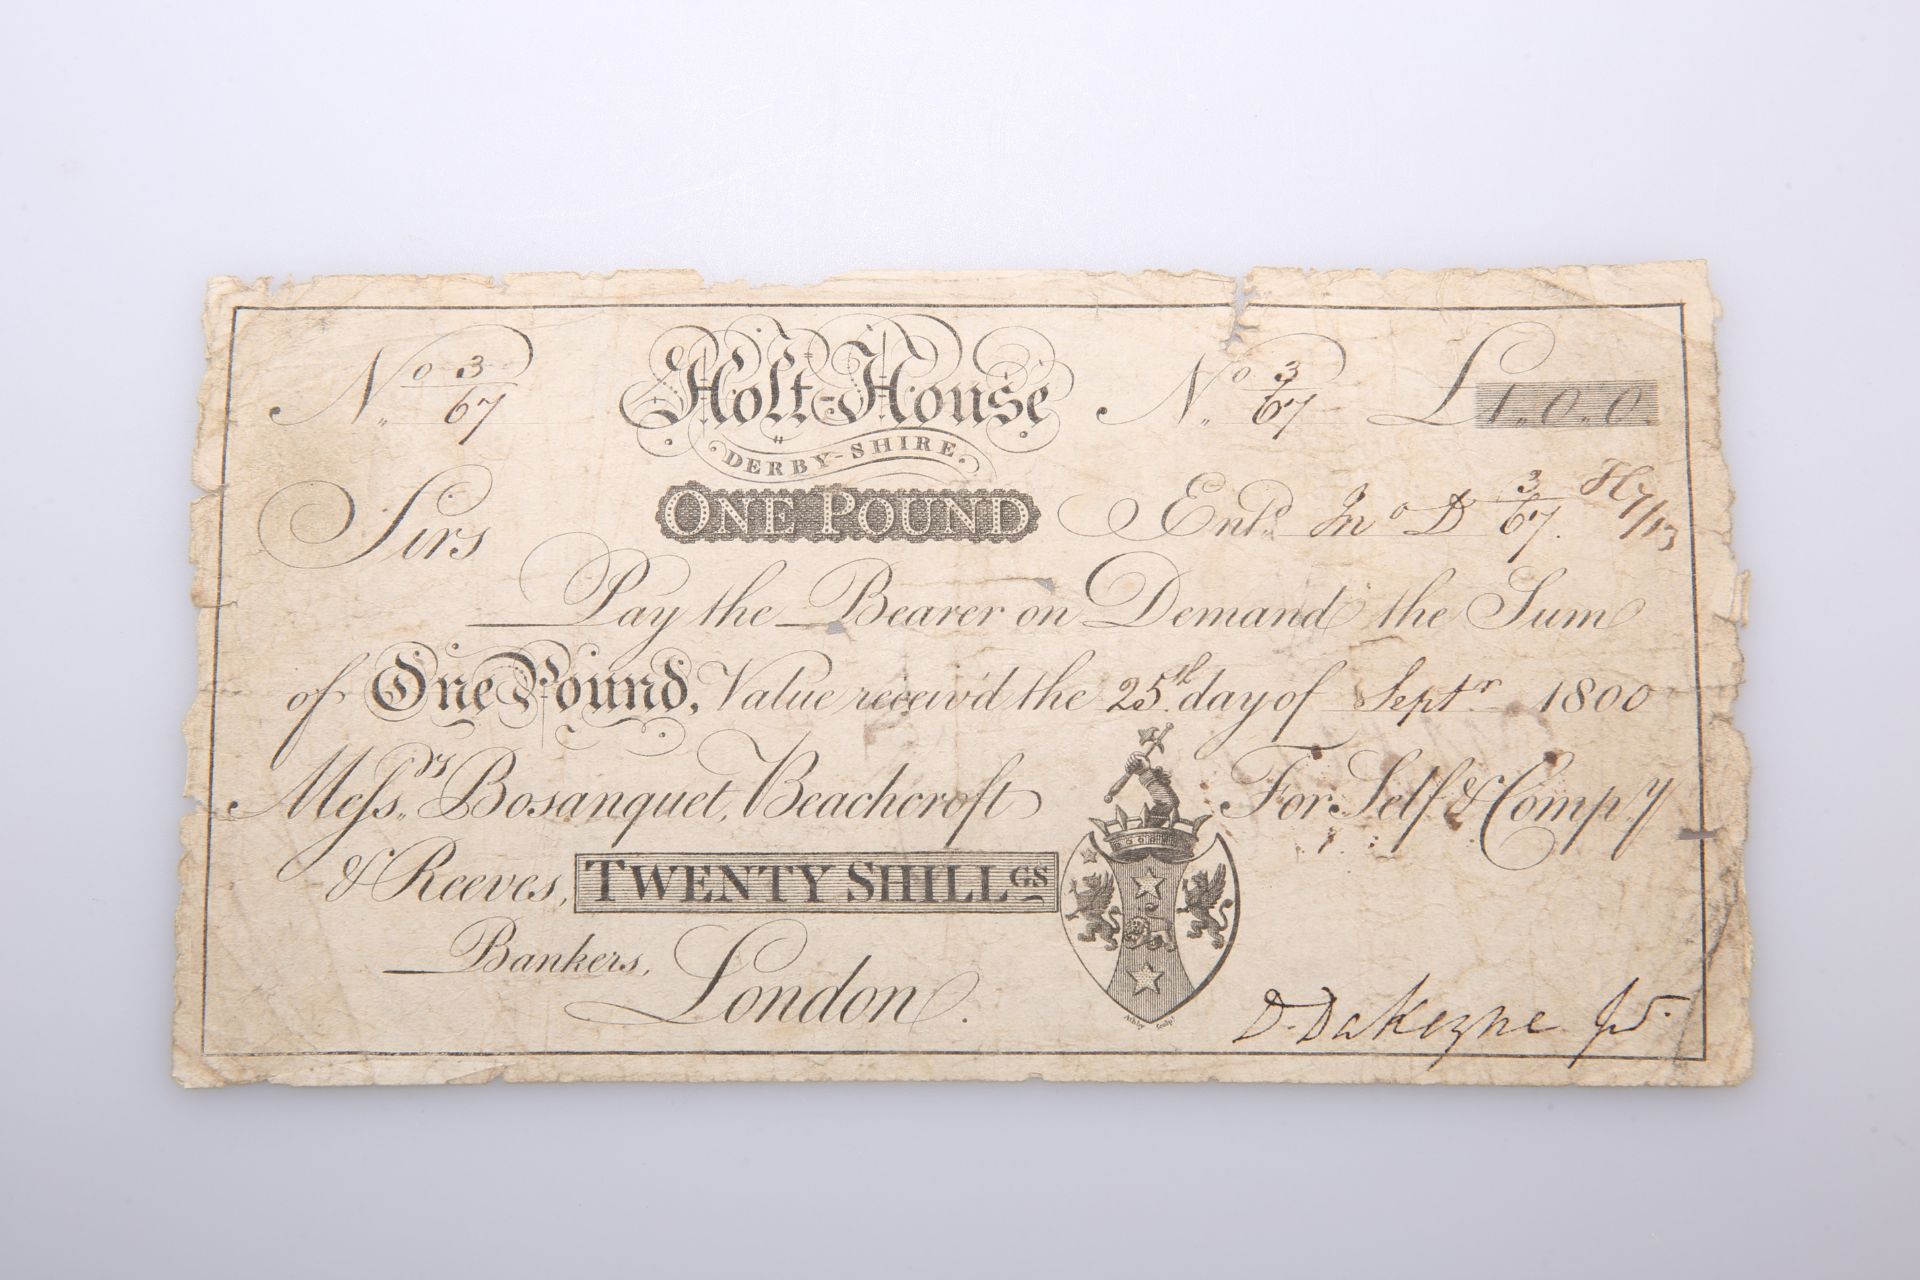 No. 3/67 Holt-House No. 3/67 £1.0.0.
DERBY-SHIRE.
Sirs ONE POUND Entd. Jno D 3/67.
Pay the Bearer on Demand the Sum
of One Pound, Value receiv'd the 25th day of Septr 1800
Messrs. Bosanquet, Beachcroft For Self & Compy
& Reeves, TWENTY SHILLGS
Bankers,
London.
Ashby Sculpt
D. Dakeyne Jr.